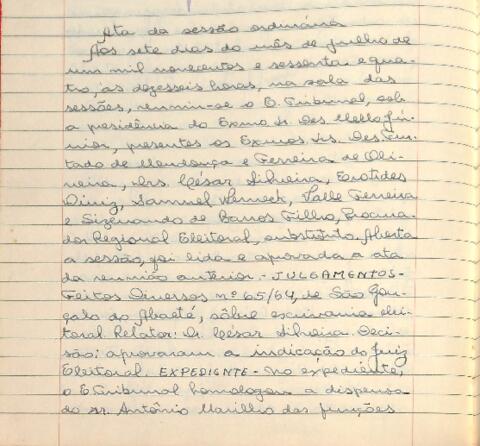 Ata da sessão ordinária
Aos sete dias do mês de julho de
um mil novecentos e sessenta e qua-
tro, às dezesseis horas, na sala das
sessões, reuniu-se o E. Tribunal, sob
a presidência do Exmo. Sr. Des. Mello Jú-
nior, presentes os Exmos. Srs. Des. Fur-
tado de Mendonça e Ferreira de Oli-
veira, Drs. César Silveira, Erotides
Diniz, Samuel Werneck, Valle Ferreira
e Sizenando de Barros Filho, Procura-
dor Regional Eleitoral, substituto. Aberta
a sessão, foi lida e aprovada a ata
da reunião anterior. - JULGAMENTOS -
Feitos Diversos nº 65/64, de São Gon-
çalo do Abaeté, sôbre escrivania elei-
toral. Relator: Dr. César Silveira. Deci-
são: aprovaram a indicação do Juiz
Eleitoral. EXPEDIENTE - No expediente,
o E. Tribunal homologou a dispensa
do sr. Antônio Marillio das funções